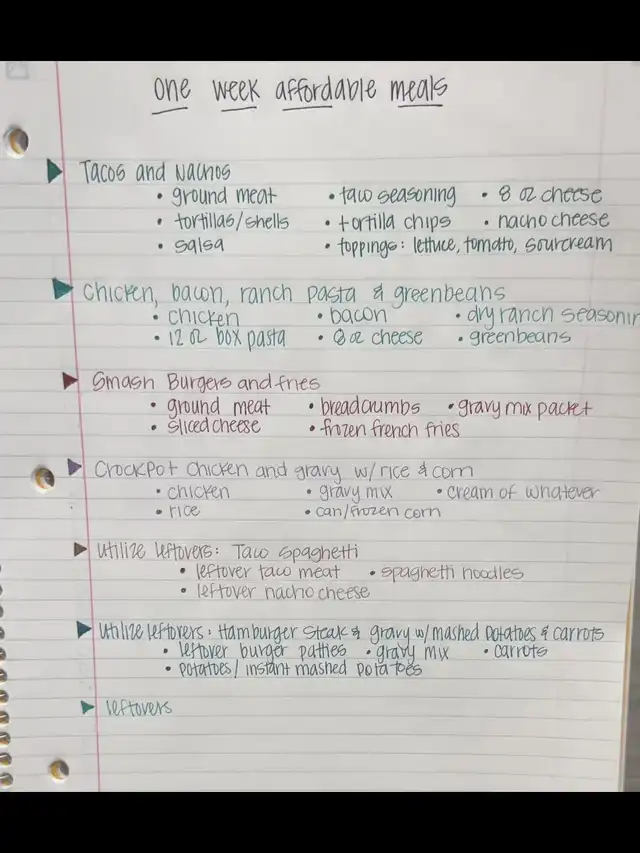 one week affordable meals
Tacos and Nachos
• ground meat • taco seasoning • 8 oz cheese
• tortillas/shells • tortilla chips • nacho cheese
• salsa • toppings: lettuce, tomato, sourcream
Chicken, bacon, ranch pasta & greenbeans
• chicken • bacon • dry ranch seasonin
• 12 oz box pasta • 8 oz cheese • greenbeans
Smash Burgers and fries
• ground meat • breadcrumbs • gravy mix packet
• sliced cheese • frozen french fries
Crockpot Chicken and gravy w/ rice & corn
• chicken • gravy mix • cream of whatever
• rice • can/frozen corn
Utilize leftovers: Taco Spaghetti
• leftover taco meat • spaghetti noodles
• leftover nacho cheese
Utilize leftovers: Hamburger Steak & gravy w/ mashed potatoes & carrots
• leftover burger patties • gravy mix • carrots
• potatoes/ instant mashed potatoes
leftovers